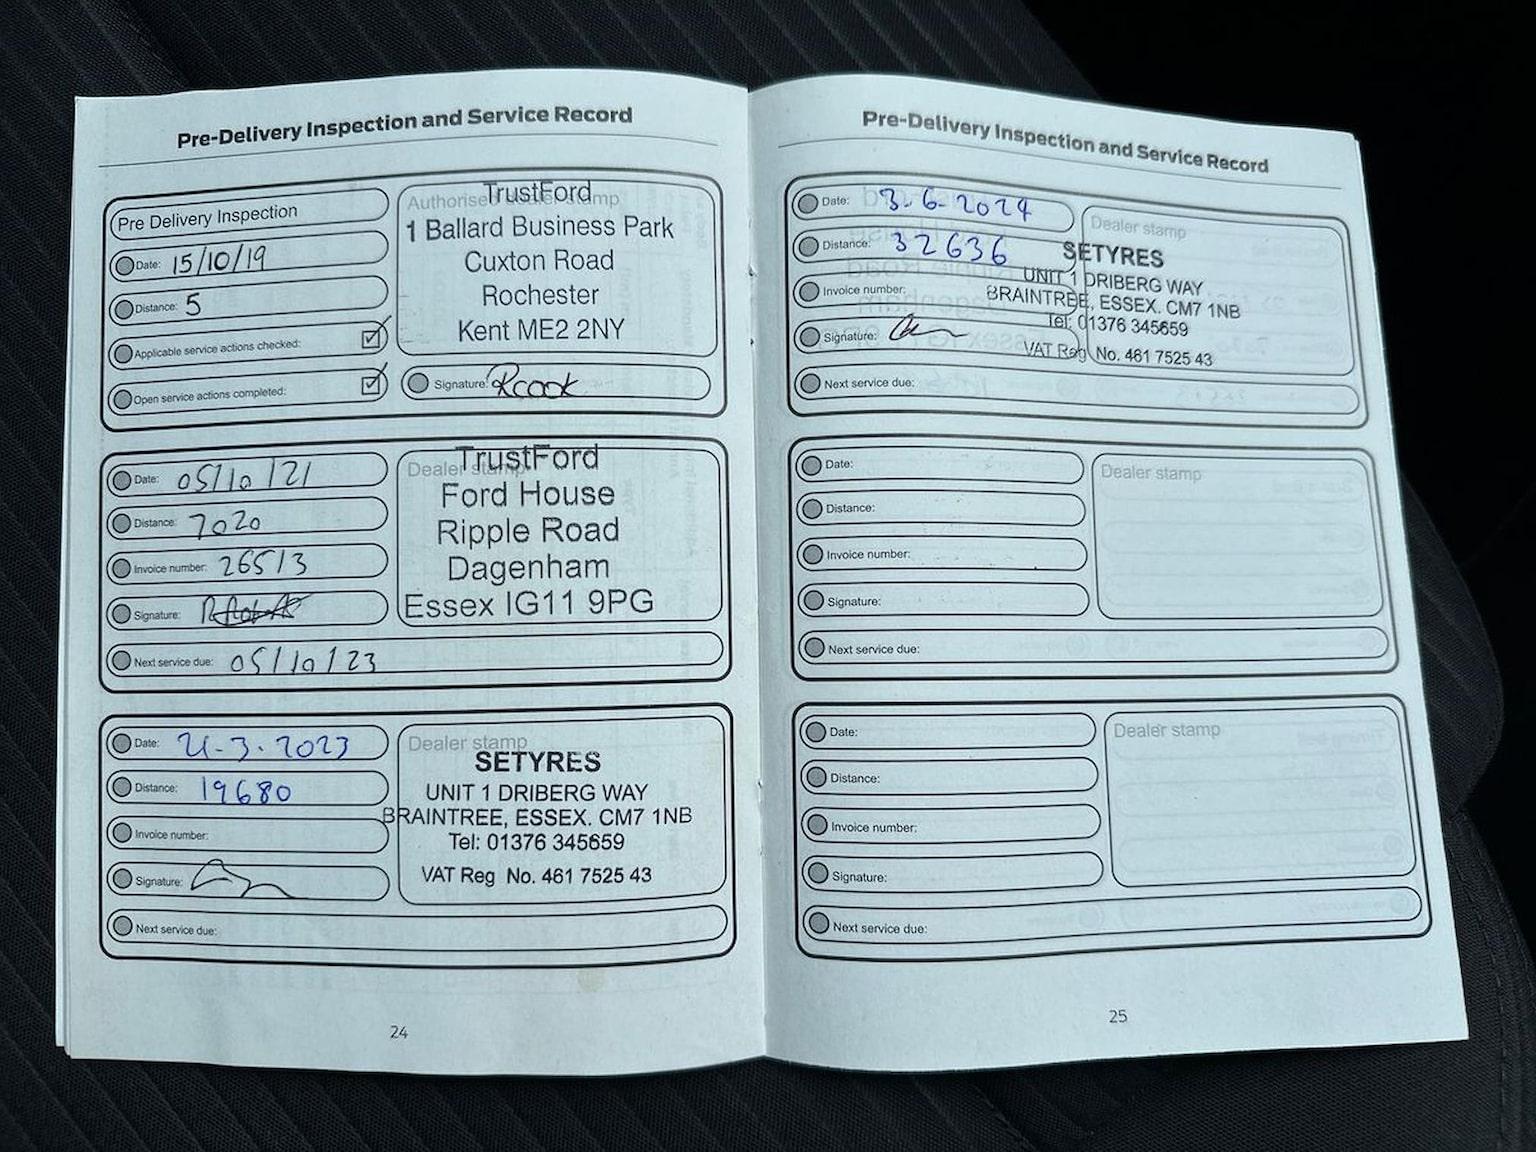 Pre-Delivery Inspection and Service Record
Pre Delivery Inspection
Date: 15/10/19
Distance: 5
Applicable service actions checked:
Open service actions completed:
Authorised dealer stamp
TrustFord
1 Ballard Business Park
Cuxton Road
Rochester
Kent ME2 2NY
Signature: Rcook
Date: 05/10/21
Distance: 7020
Invoice number: 26513
Signature:
Next service due: 05/10/23
Dealer stamp
TrustFord
Ford House
Ripple Road
Dagenham
Essex IG11 9PG
Date: 21-3-2023
Distance: 19680
Invoice number:
Signature:
Next service due:
Dealer stamp
SETYRES
UNIT 1 DRIBERG WAY
BRAINTREE, ESSEX. CM7 1NB
Tel: 01376 345659
VAT Reg No. 461 7525 43
24
Pre-Delivery Inspection and Service Record
Date: 3-6-2024
Distance: 32636
Invoice number:
Signature:
Next service due:
Dealer stamp
SETYRES
UNIT 1 DRIBERG WAY
BRAINTREE, ESSEX. CM7 1NB
Tel: 01376 345659
VAT Reg No. 461 7525 43
Date:
Distance:
Invoice number:
Signature:
Next service due:
Dealer stamp
Date:
Distance:
Invoice number:
Signature:
Next service due:
Dealer stamp
25